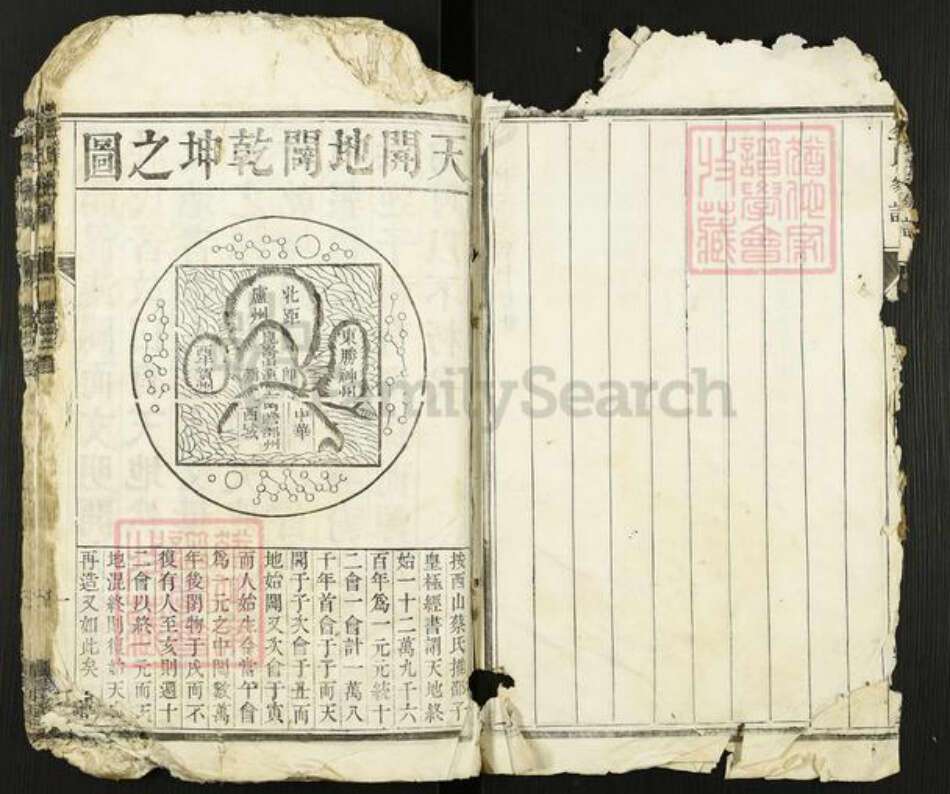 天開地闢乾坤之圖
北距
廬州
東勝神州
中華
西域
按西山蔡氏據邵子
皇極經書謂天地終
始一十二萬九千六
百年爲一元元統十
二會一會計一萬八
千年首會于子而天
開于子次會于丑而
地始闢又次會于寅
而人始生今當午會
爲一元之中間數萬
年後閉物于戌而不
復有人至亥則週十
二會以終一元而天
地混終則復始天
再造又如此矣
FamilySearch